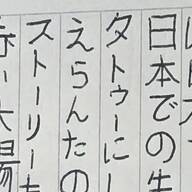 日本での生
タトゥーにし
えらんたの
ストーリーも